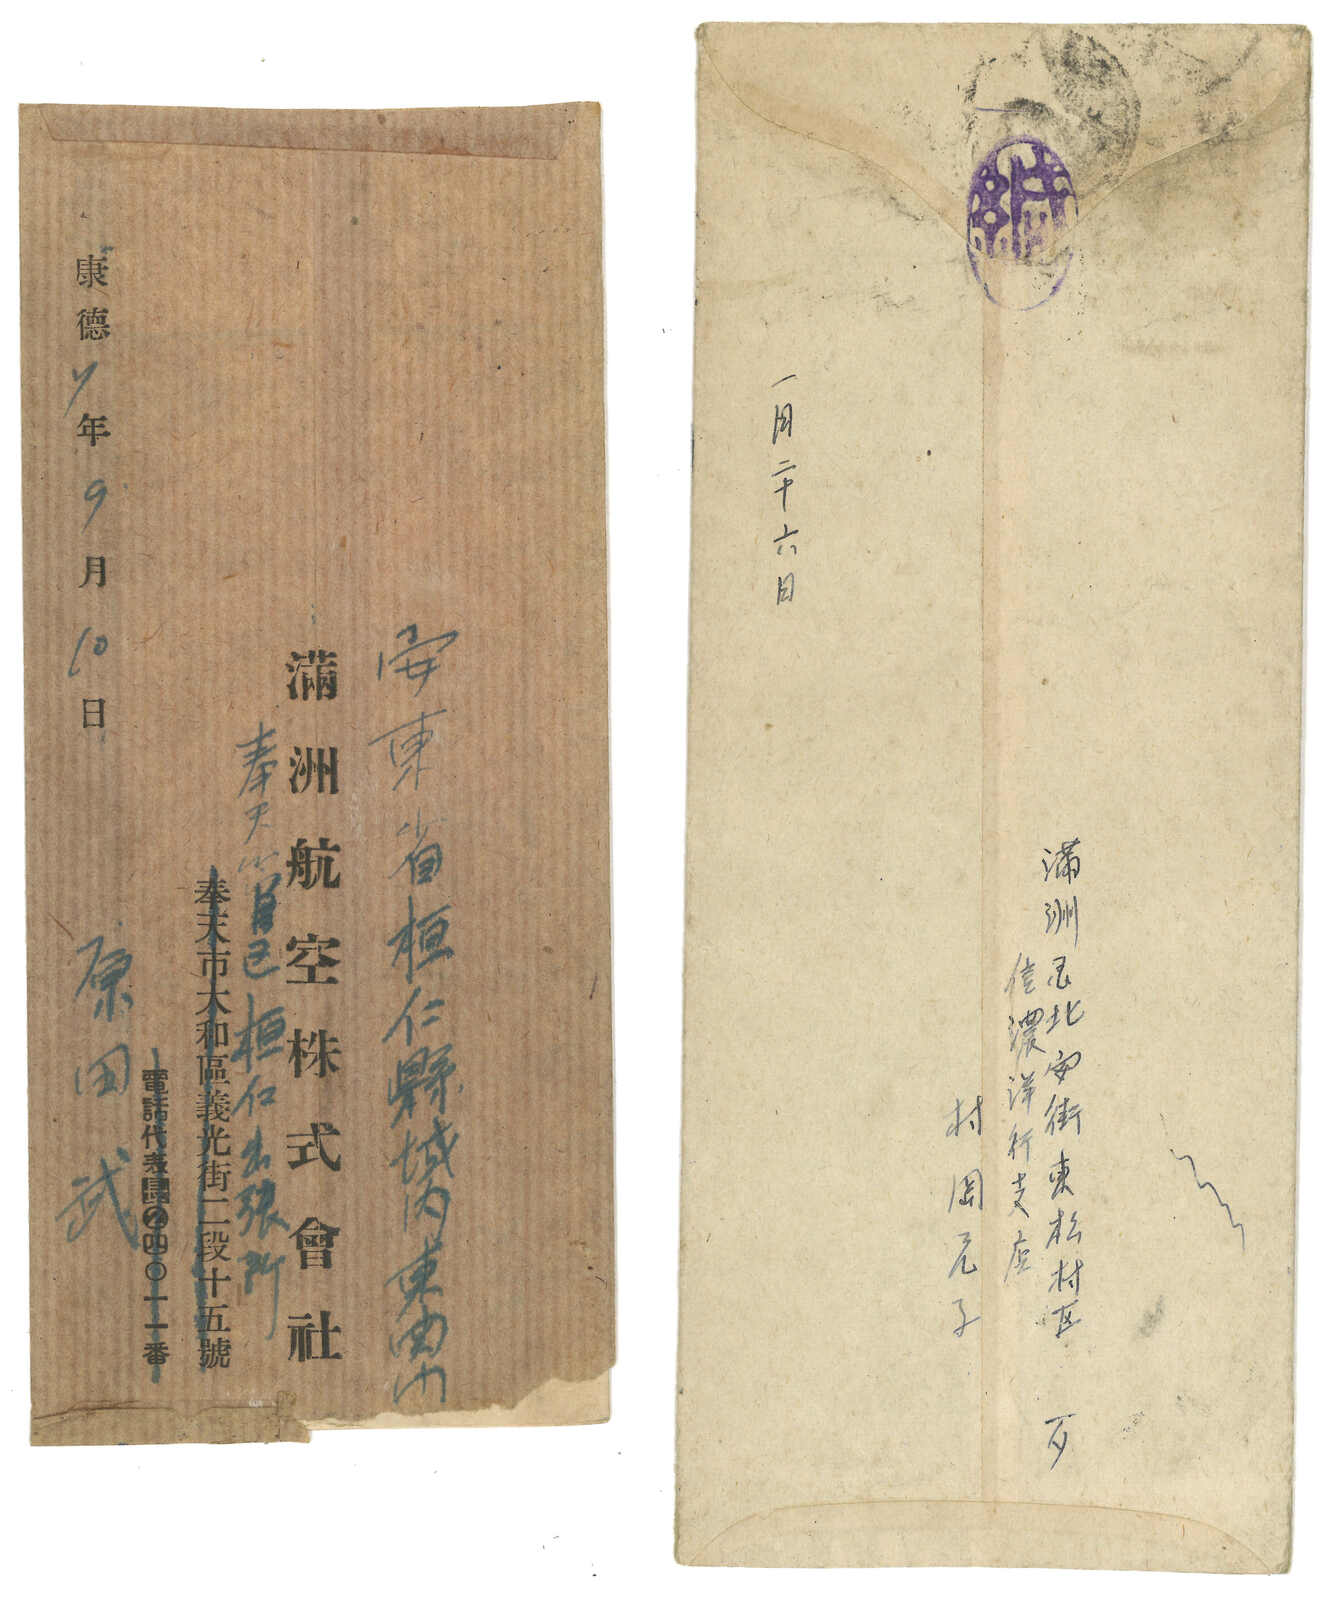 安東省桓仁縣城内東関内
滿洲航空株式會社
奉天管区桓仁出張所
奉天市大和區義光街二段十五號
電話代表②四〇一一番
原田武
康德7年9月10日
緘
満洲国北安街東松村区
信濃洋行支店
村岡元子
一月二十六日